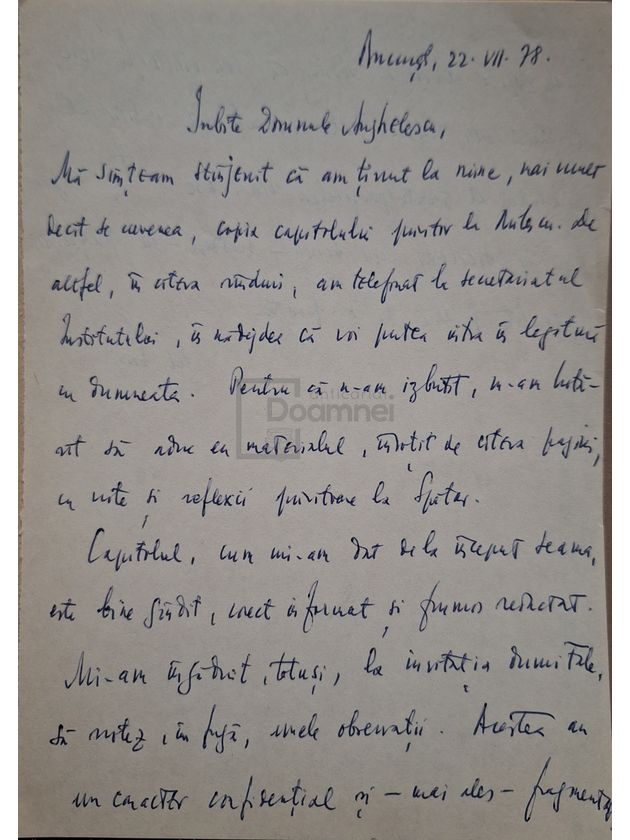 Bucureşti, 22. VII. 78.
Iubite Domnule Anghelescu,
Mă simţeam stînjenit că am ţinut la mine, mai mult
decît se cuvenea, copia capitolului privitor la Milescu. De
altfel, în cîteva rînduri, am telefonat la secretariatul
Institutului, în nădejdea că voi putea intra în legătură
cu dumneata. Pentru că n-am izbutit, m-am hotă-
rît să aduc eu materialul, însoţit de cîteva pagini,
anticariat
Doamnei
cu note şi reflexii privitoare la Spătar.
Capitolul, cum mi-am dat de la început seama,
este bine gîndit, corect informat şi frumos redactat.
Mi-am îngăduit, totuşi, la invitaţia dumitale,
să notez, în fugă, unele observaţii. Acestea au
un caracter confidenţial şi – mai ales –